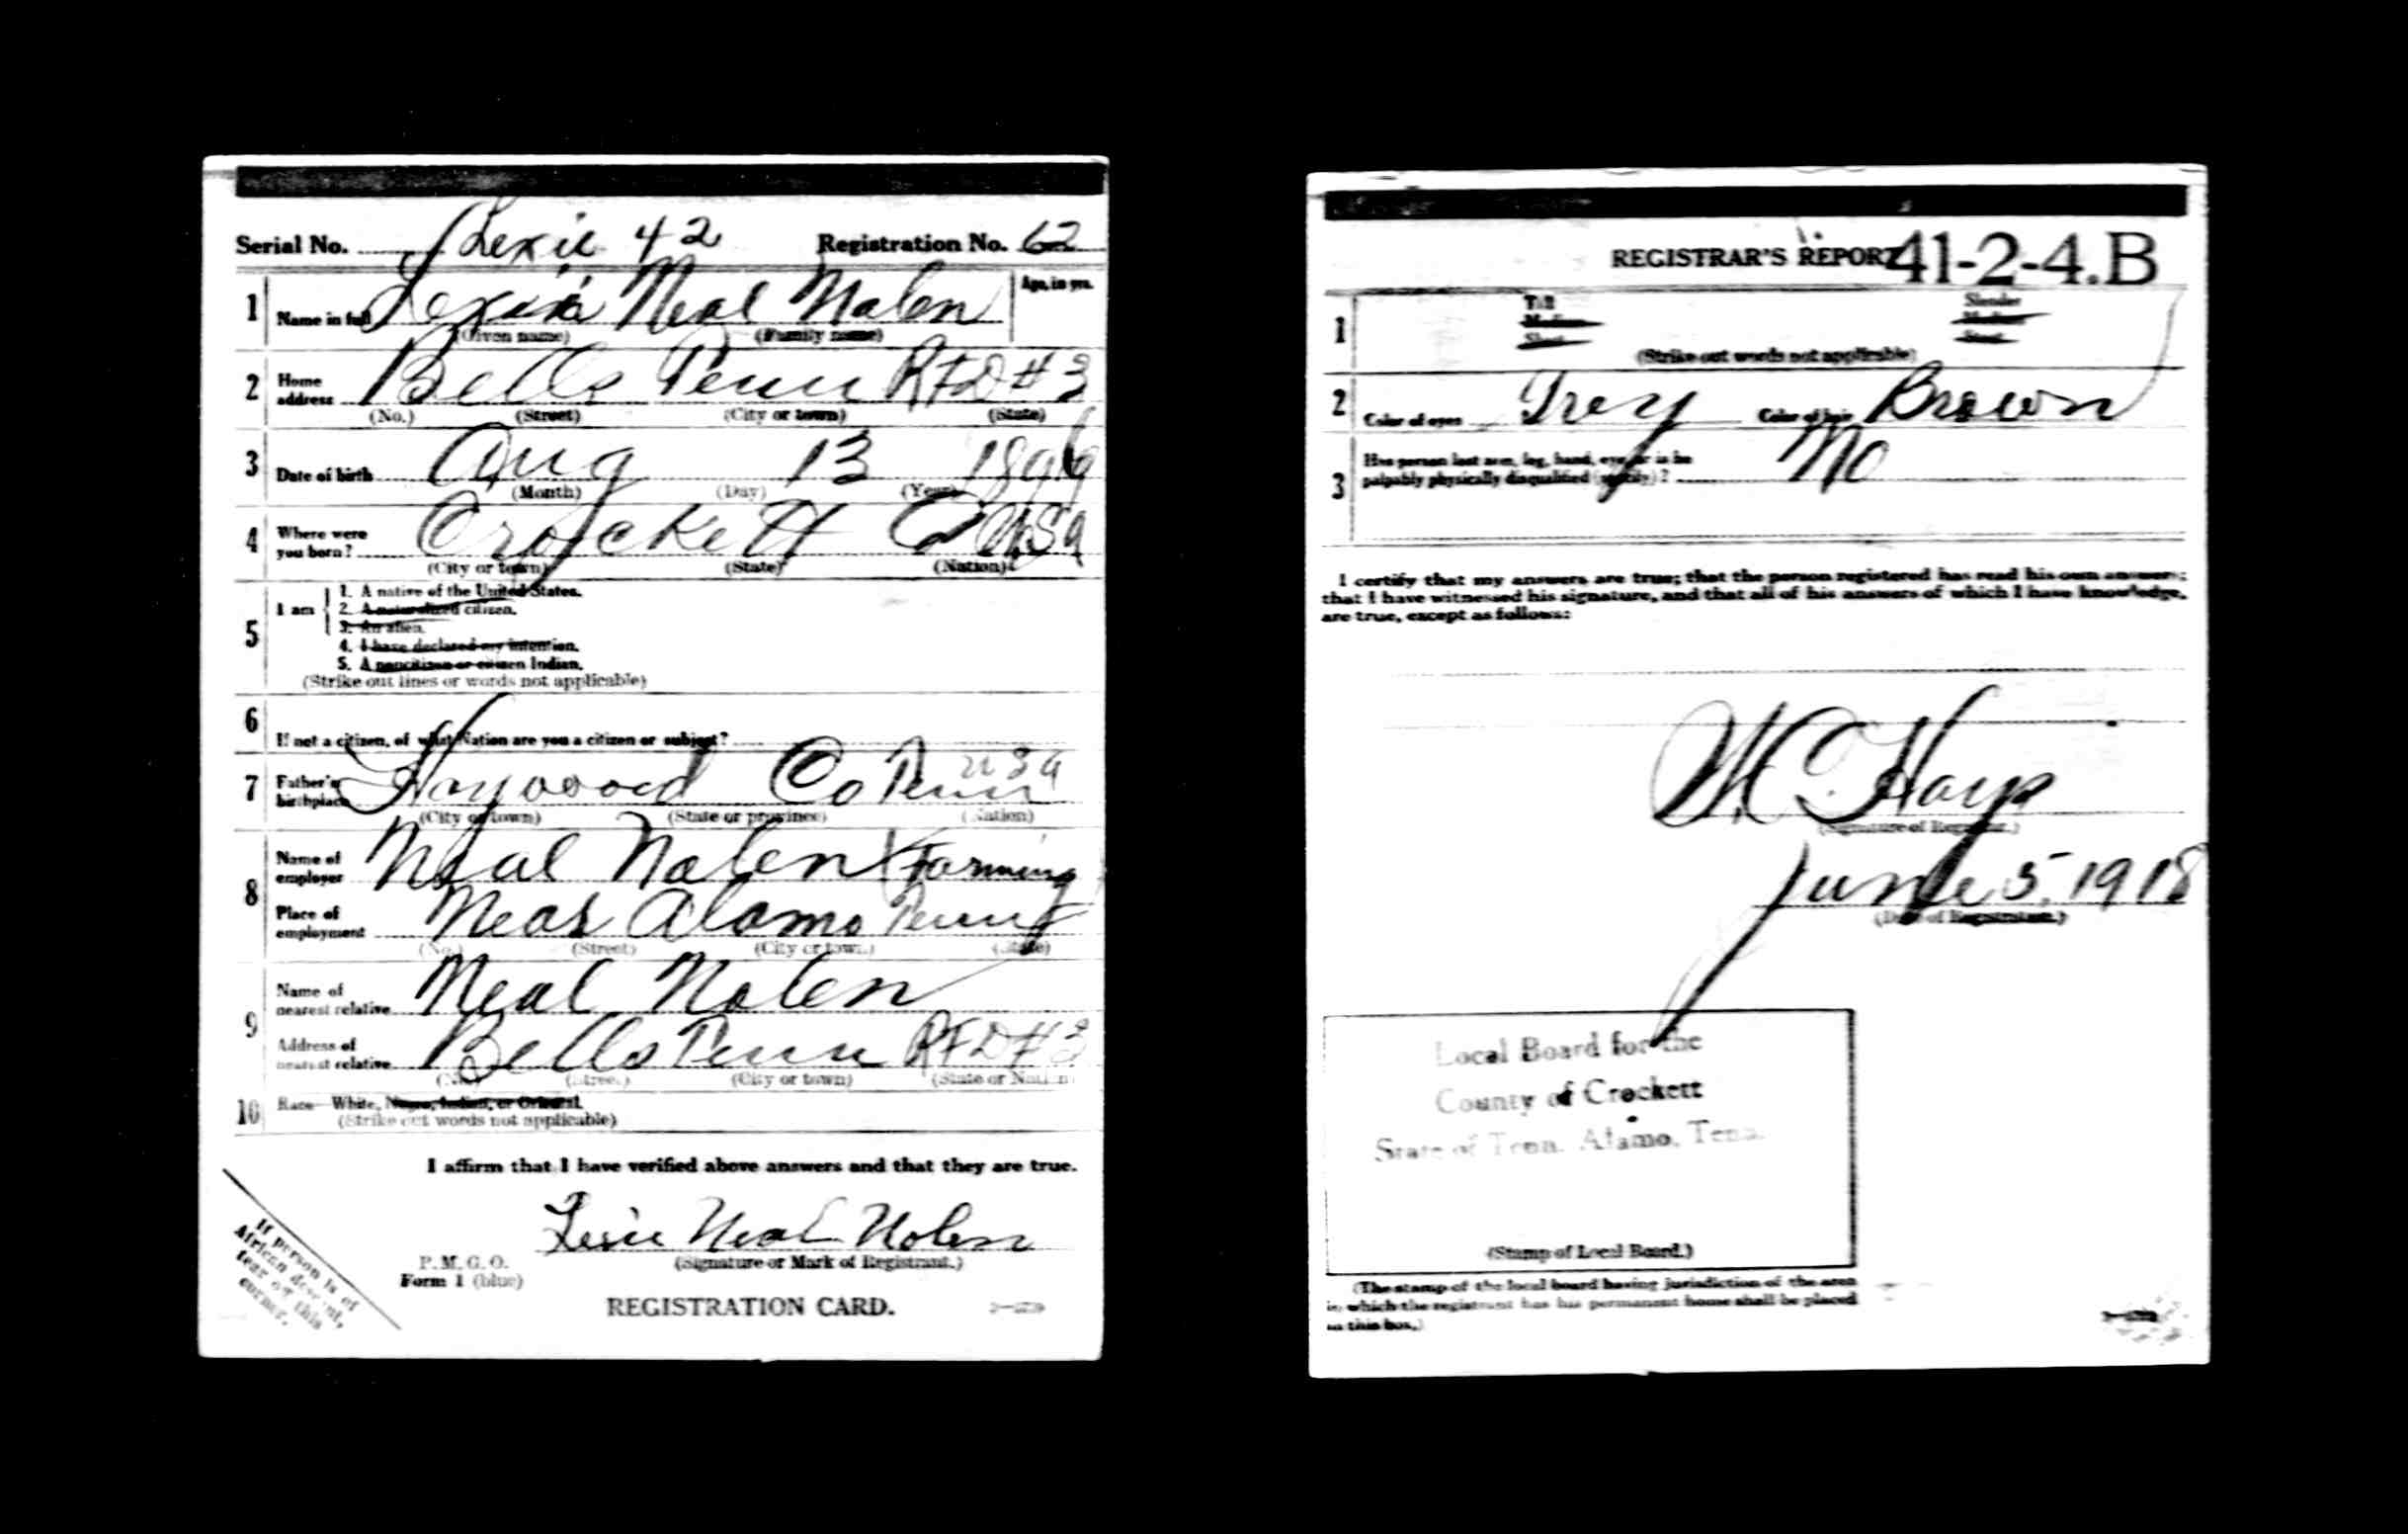 Serial No. Lexie 42 Registration No. 62
1 Name in full Lexie Neal Nolen Age, in yrs.
(Given name) (Family name)
2 Home address Bells Tenn RFD #3
(No.) (Street) (City or town) (State)
3 Date of birth Aug 13 1896
(Month) (Day) (Year)
4 Where were you born? Crockett Co USA
(City or town) (State) (Nation)
5 I am
1. A native of the United States.
2. A naturalized citizen.
3. An alien.
4. I have declared my intention.
5. A noncitizen or citizen Indian.
(Strike out lines or words not applicable)
6 If not a citizen, of what Nation are you a citizen or subject?
7 Father's birthplace Haywood Co Tenn USA
(City or town) (State or province) (Nation)
8 Name of employer Neal Nolen Farming
Place of employment Near Alamo Tenn
(No.) (Street) (City or town) (State)
9 Name of nearest relative Neal Nolen
Address of nearest relative Bells Tenn RFD #3
(No.) (Street) (City or town) (State or Nation)
10 Race—White, Negro, Indian, or Oriental.
(Strike out words not applicable)
I affirm that I have verified above answers and that they are true.
Lexie Neal Nolen
(Signature or Mark of Registrant.)
P. M. G. O.
Form 1 (blue)
REGISTRATION CARD.
If person is of
African descent,
tear off this
corner.
REGISTRAR'S REPORT 41-2-4.B
1 Tall Slender
Medium Medium
Short Stout
(Strike out words not applicable)
2 Color of eyes Grey Color of hair Brown
3 Has person lost arm, leg, hand, eye, or is he
palpably physically disqualified (specify)? No
I certify that my answers are true; that the person registered has read his own answers;
that I have witnessed his signature, and that all of his answers of which I have knowledge,
are true, except as follows:
(Signature of Registrar.)
June 5, 1918
(Date of Registration.)
Local Board for the
County of Crockett
State of Tenn. Alamo, Tenn.
(Stamp of Local Board.)
(The stamp of the local board having jurisdiction of the area
in which the registrant has his permanent home shall be placed
in this box.)